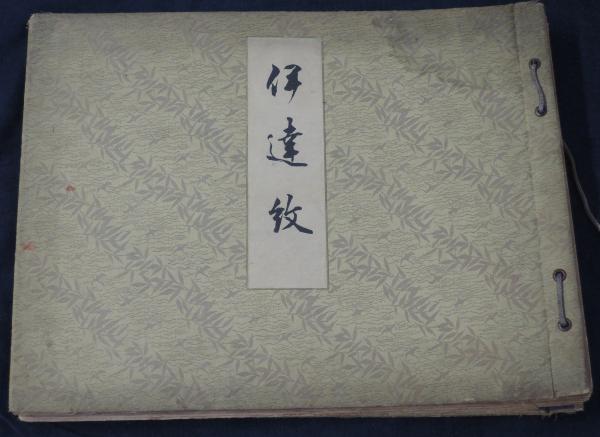 伊達紋